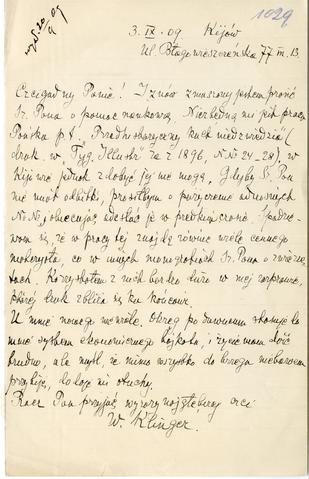 1029
wysł. 20/9 09
3. IX. 09 Kijów
Ul. Błagowieszczeńska 77 m. 13.
Czcigodny Panie! Znów zmuszony jestem prosić
Sz. Pana o pomoc naukową. Niezbędna mi jest praca
Pańska p.t. "Przedhistoryczny kult niedźwiedzia" (
druk. w "Tyg. Illustr" za r. 1896, N.N. 24-28), w
Kijowie jednak zdobyć jej nie mogę. Gdyby Sz. Pan
nie miał odbitki, prosiłbym o pożyczenie odnośnych
N.N., obiecując odesłać je w prędkim czasie. Spodzie-
wam się, że w pracy tej znajdę równie wiele cennego
materyału, co w innych monografiach Sz. Pana o zwierzę-
tach. Korzystałem z nich bardzo dużo w mej rozprawie,
której druk zbliża się ku końcowi.
U mnie nowego niewiele. Okręg po dawnemu skazuje
mnie systemem ekonomicznego bojkotu, i życie mam dość
trudne, ale myśl, że mimo wszystko do brzega niebawem
przybiję, dodaje mi otuchy.
Racz Pan przyjąć wyrazy najgłębszej czci
W. Klinger.